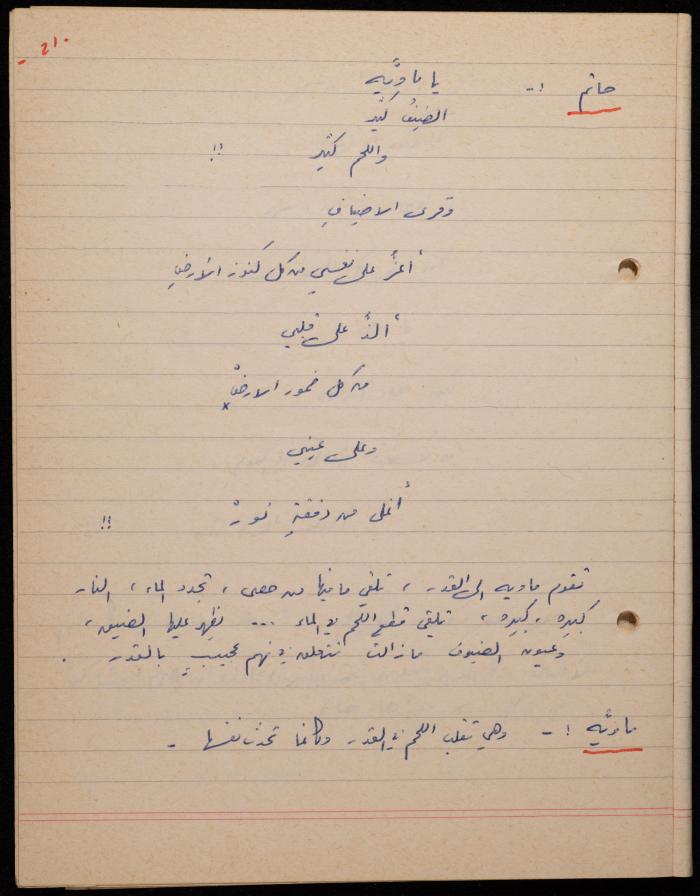 - ٢١٠
حاتم :- يا ماويَّه
الضيفُ كثير
واللحم كثير !!
وقرى الاضيافِ
أعزُّ على نفسي من كل كنوز الأرضِ
ألذُّ على قلبي
من كل خمور الارضْ
وعلى عيني
أغلى من دفقةِ نورْ !!
تقوم ماويه الى القدر ، تلقي ما فيها من حصى ، تجدد الماء ، النار
كبيره ، كبيره ، تلقي قطع اللحم في الماء ... يظهر عليها الضيق ،
وعيون الضيوف ما زالت تتعلق في نهم عجيبٍ بالقدر .
ماويَّه :- وهي تقلب اللحم في القدر وكانما تحدث نفسها -